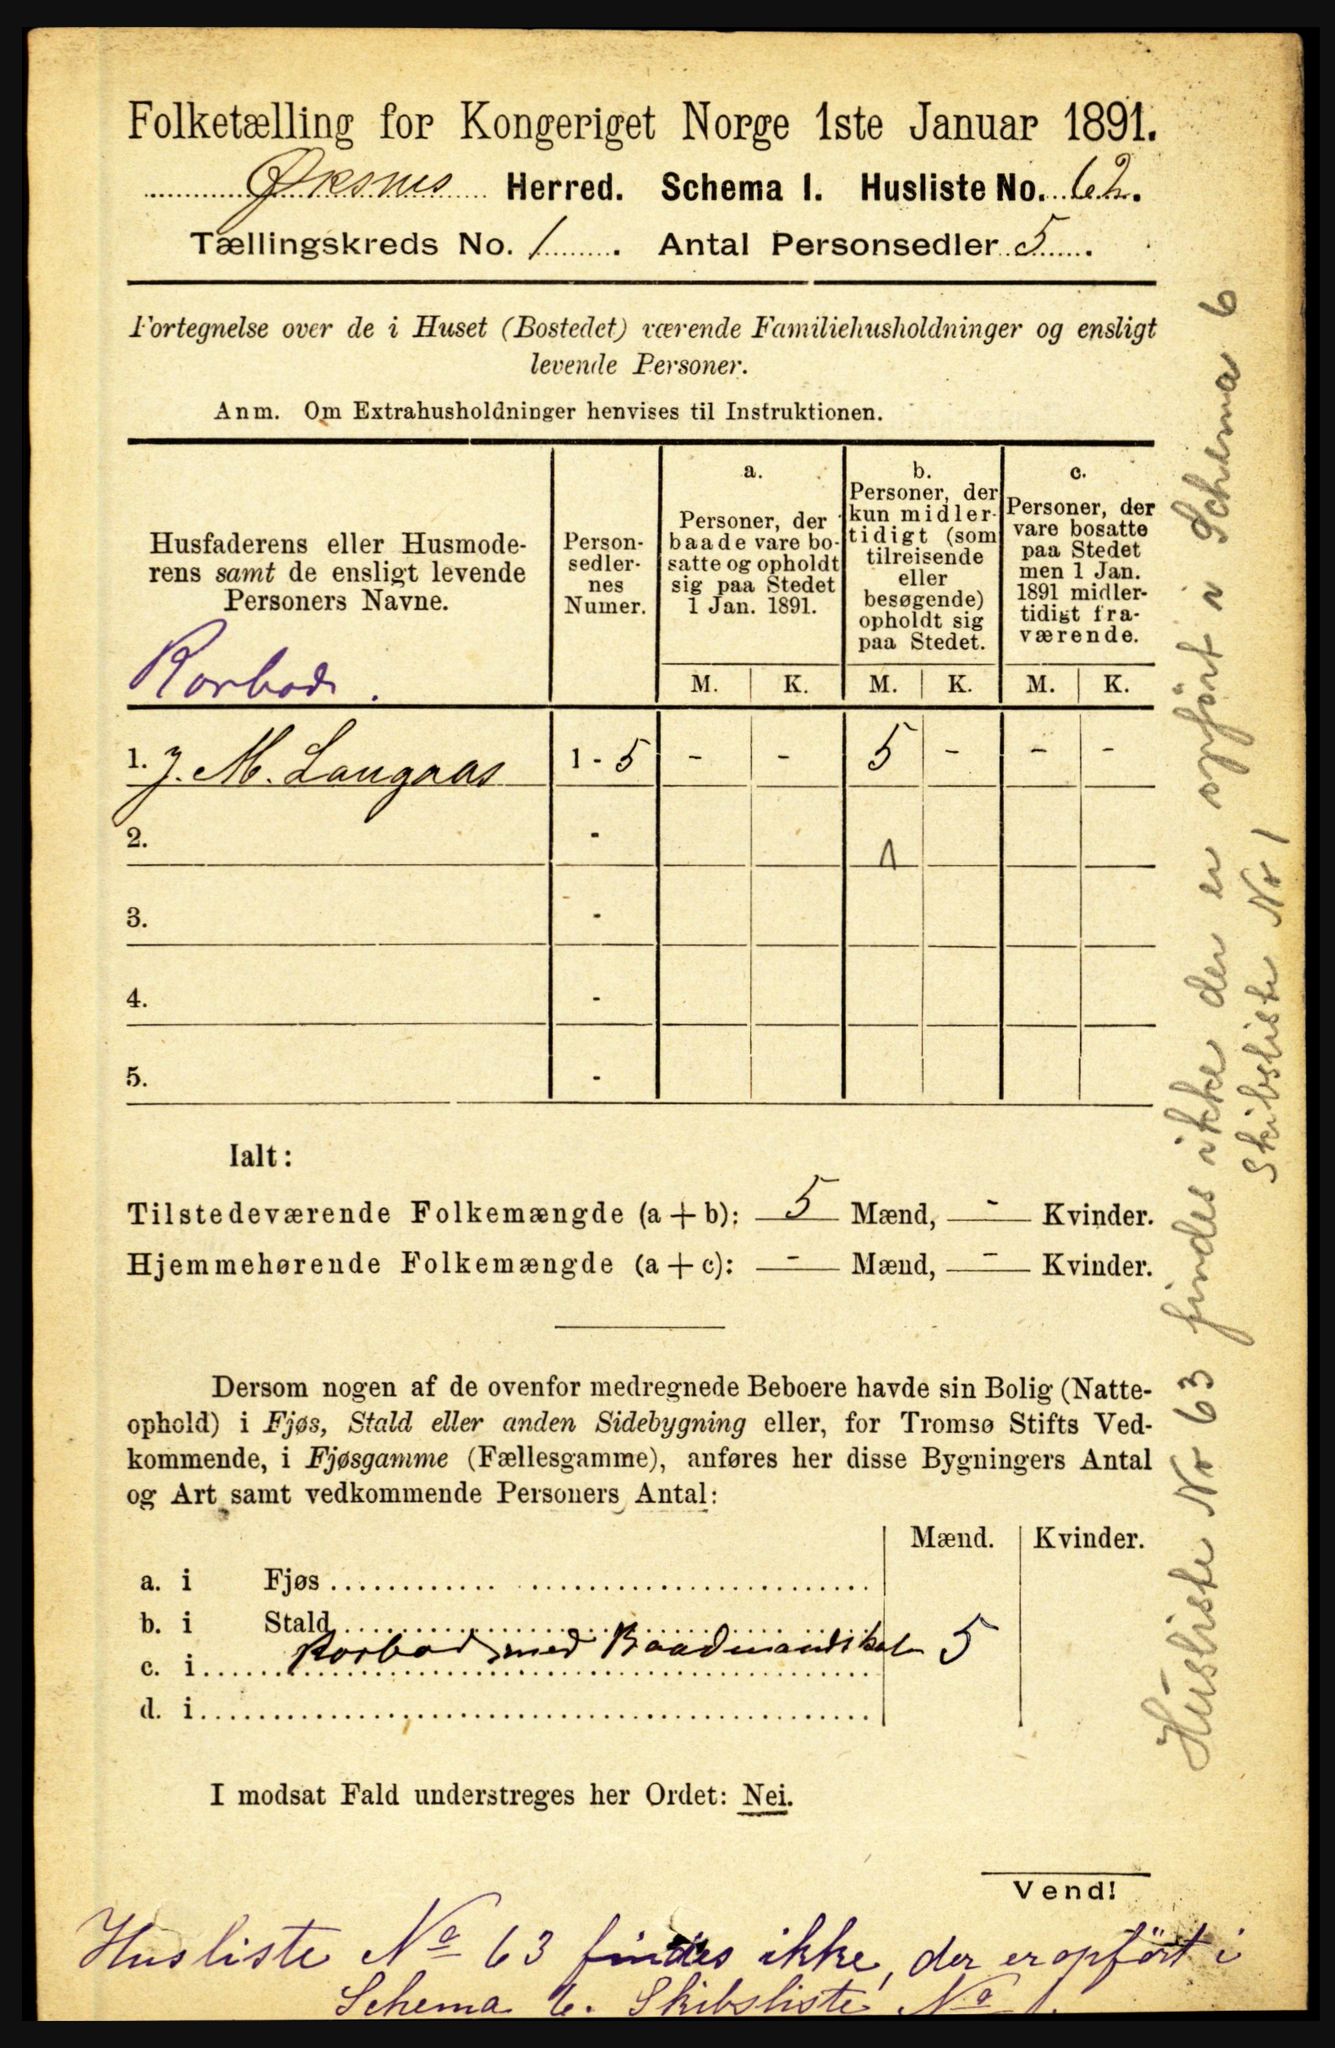 Folketælling for Kongeriget Norge 1ste Januar 1891.
Øksnes Herred. Schema I. Husliste No. 62.
Tællingskreds No. 1. Antal Personsedler 5.
Fortegnelse over de i Huset (Bostedet) værende Familiehusholdninger og ensligt
levende Personer.
Anm. Om Extrahusholdninger henvises til Instruktionen.
Husfaderens eller Husmode-
rens samt de ensligt levende
Personers Navne.
Rorbod.
Person-
sedler-
nes
Numer.
a.
Personer, der
baade vare bo-
satte og opholdt
sig paa Stedet
1 Jan. 1891.
b.
Personer, der
kun midler-
tidigt (som
tilreisende
eller
besøgende)
opholdt sig
paa Stedet.
c.
Personer, der
vare bosatte
paa Stedet
men 1 Jan.
1891 midler-
tidigt fra-
værende.
M. K. M. K. M. K.
1. J. M. Langaas 1 - 5 - - 5 - - -
2. -
3. -
4. -
5. -
Ialt:
Tilstedeværende Folkemængde (a + b): 5 Mænd, - Kvinder.
Hjemmehørende Folkemængde (a + c): - Mænd, - Kvinder.
Dersom nogen af de ovenfor medregnede Beboere havde sin Bolig (Natte-
ophold) i Fjøs, Stald eller anden Sidebygning eller, for Tromsø Stifts Ved-
kommende, i Fjøsgamme (Fællesgamme), anføres her disse Bygningers Antal
og Art samt vedkommende Personers Antal:
Mænd. Kvinder.
a. i Fjøs
b. i Stald
c. i Rorbod med Baadmandskab 5
d. i
I modsat Fald understreges her Ordet: Nei.
Vend!
Husliste No 63 findes ikke, der er opført i
Schema 6. Skibsliste No 1.
Husliste Nr 63 findes ikke der er opført i Schema 6
Skibsliste Nr 1